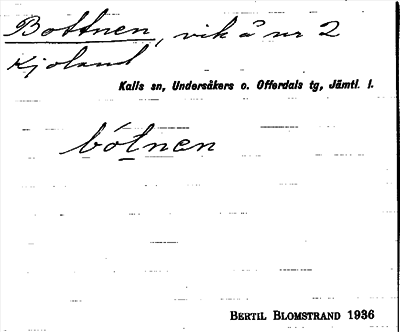 Bottnen, vik å nr 2
Kjoland
Kalls sn, Undersåkers o. Offerdals tg, Jämtl. l.
bótnen
BERTIL BLOMSTRAND 1936